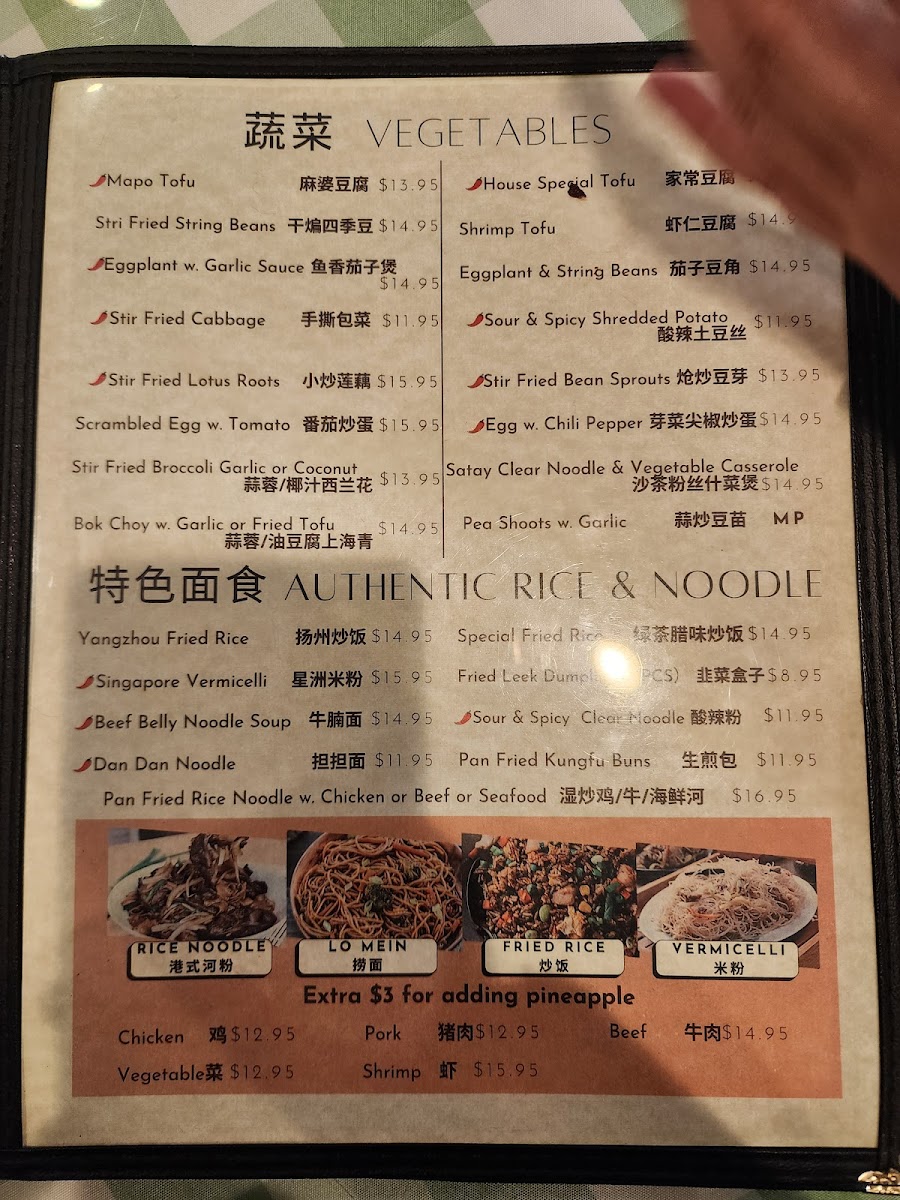 蔬菜 VEGETABLES
Mapo Tofu 麻婆豆腐 $13.95
Stri Fried String Beans 干煸四季豆 $14.95
Eggplant w. Garlic Sauce 鱼香茄子煲
$14.95
Stir Fried Cabbage 手撕包菜 $11.95
Stir Fried Lotus Roots 小炒莲藕 $15.95
Scrambled Egg w. Tomato 番茄炒蛋 $15.95
Stir Fried Broccoli Garlic or Coconut
蒜蓉/椰汁西兰花 $13.95
Bok Choy w. Garlic or Fried Tofu
蒜蓉/油豆腐上海青 $14.95
House Special Tofu 家常豆腐
Shrimp Tofu 虾仁豆腐 $14.9
Eggplant & String Beans 茄子豆角 $14.95
Sour & Spicy Shredded Potato $11.95
酸辣土豆丝
Stir Fried Bean Sprouts 炝炒豆芽 $13.95
Egg w. Chili Pepper 芽菜尖椒炒蛋 $14.95
Satay Clear Noodle & Vegetable Casserole
沙茶粉丝什菜煲 $14.95
Pea Shoots w. Garlic 蒜炒豆苗 MP
特色面食 AUTHENTIC RICE & NOODLE
Yangzhou Fried Rice 扬州炒饭 $14.95
Singapore Vermicelli 星洲米粉 $15.95
Beef Belly Noodle Soup 牛腩面 $14.95
Dan Dan Noodle 担担面 $11.95
Special Fried Rice 绿茶腊味炒饭 $14.95
Fried Leek Dumpl PCS) 韭菜盒子 $8.95
Sour & Spicy Clear Noodle 酸辣粉 $11.95
Pan Fried Kungfu Buns 生煎包 $11.95
Pan Fried Rice Noodle w. Chicken or Beef or Seafood 湿炒鸡/牛/海鲜河 $16.95
RICE NOODLE
港式河粉
LO MEIN
捞面
FRIED RICE
炒饭
VERMICELLI
米粉
Extra $3 for adding pineapple
Chicken 鸡 $12.95 Pork 猪肉 $12.95 Beef 牛肉 $14.95
Vegetable菜 $12.95 Shrimp 虾 $15.95